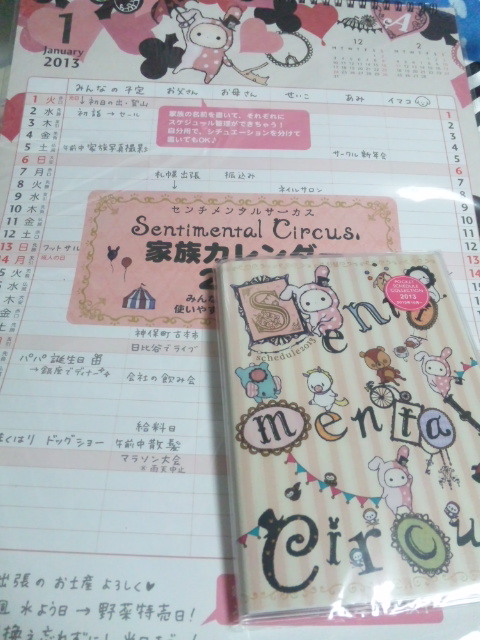 1
January
2013
A
12
2
みんなの予定 お父さん お母さん せいこ あみ イマコ
1 火 →初日の出・登山
2 水 初詣→セール
3 木
4 金
5 土 午前中 家族写真撮影 サークル新年会
6 日
7 月 札幌出張 振込み
8 火 ネイルサロン
9 水
10 木
11 金
12 土
13 日 フットサル
14 月 成人の日
家族の名前を書いて、それぞれに
スケジュール管理ができちゃう!
自分用で、シチュエーションを分けて
書いてもOK♪
センチメンタルサーカス
Sentimental Circus.
家族カレンダー
みん
使いやす
神保町古本市
日比谷でライブ
パパ誕生日
→銀座でディナー
会社の飲み会
給料日
ドッグショー 午前中散髪
マラソン大会
※雨天中止
出張のお土産よろしく
水よう日→野菜特売日!
POCKET
SCHEDULE
COLLECTION
2013
Senti
schedule2013
menta
Circu